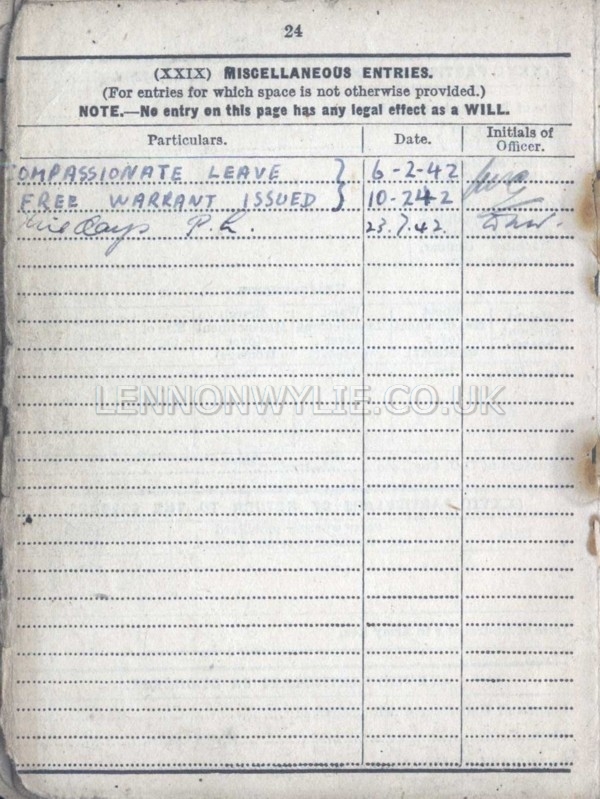 24
(XXIX) MISCELLANEOUS ENTRIES.
(For entries for which space is not otherwise provided.)
NOTE.—No entry on this page has any legal effect as a WILL.
Particulars. Date. Initials of Officer.
OMPASSIONATE LEAVE } 6-2-42
FREE WARRANT ISSUED } 10-242
days P.L. 23.7.42.
LENNONWYLIE.CO.UK